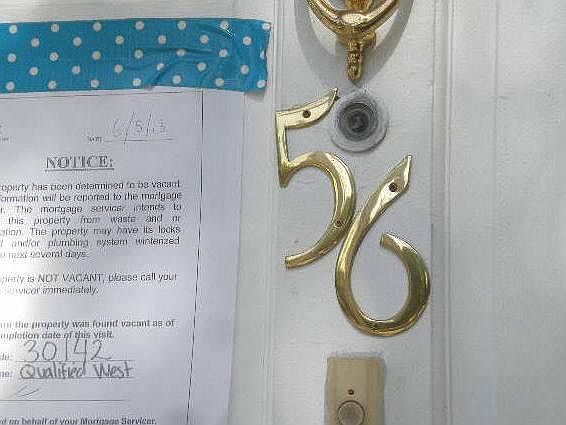 6/5/13
NOTICE:
roperty has been determined to be vacant
formation will be reported to the mortgage
r. The mortgage servicer intends to
this property from waste and or
ation. The property may have its locks
d and/or plumbing system winterized
e next several days.
operty is NOT VACANT, please call your
servicer immediately.
the property was found vacant as of
mpletion date of this visit.
de: 30142
me: Qualified West
ed on behalf of your Mortgage Servicer.
56